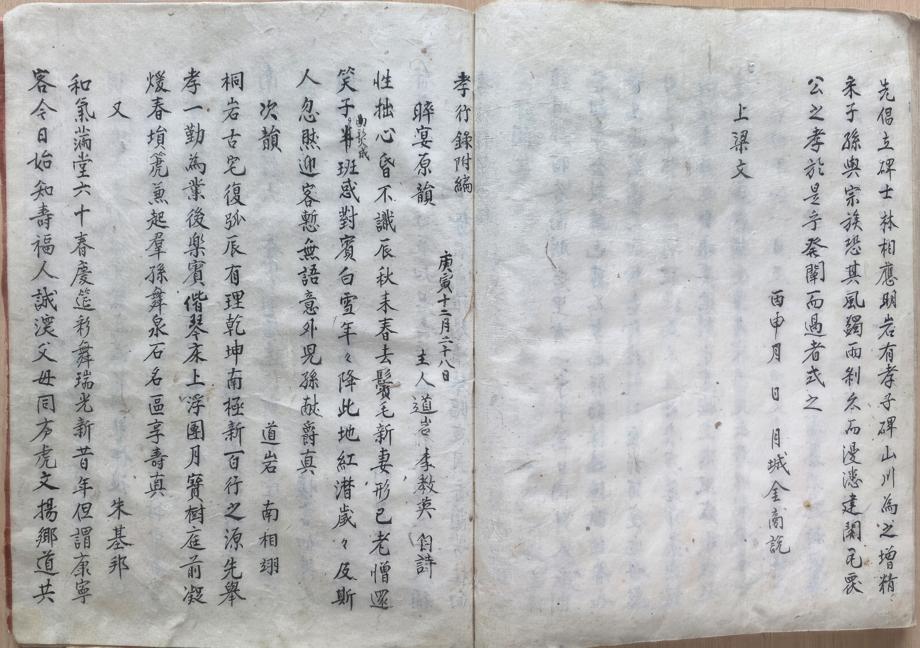 先倡立碑士林相應明岩有孝子碑山川為之增精
采子孫與宗族恐其風蠲雨剝久而漫漶建閣
公之孝於是乎發闡而過者式之
丙申月 日 月城金商說
上梁文
孝行錄附編
晬宴原韻 庚寅十二月二十八日 主人道岩李教英
性拙心昏不識辰秋来春去鬢毛新妻形已老憎還
笑子 班惑對賓白雪年々降此地紅潜歲々及斯
人忽然迎客暫無語意外児孫献爵真
次韻 道岩 南相翊
桐岩古宅復弧辰有理乾坤南極新百行之源先舉
孝一勤為業後樂賓偕琴床上浮團月寶樹庭前凝
煖春塤篪兼起羣孫舞泉石名區享壽真
又 朱基邦
和氣滿堂六十春慶筵彩舞瑞光新昔年但謂康寧
客今日始知壽福人誠深父母同 虎文揚鄉道共